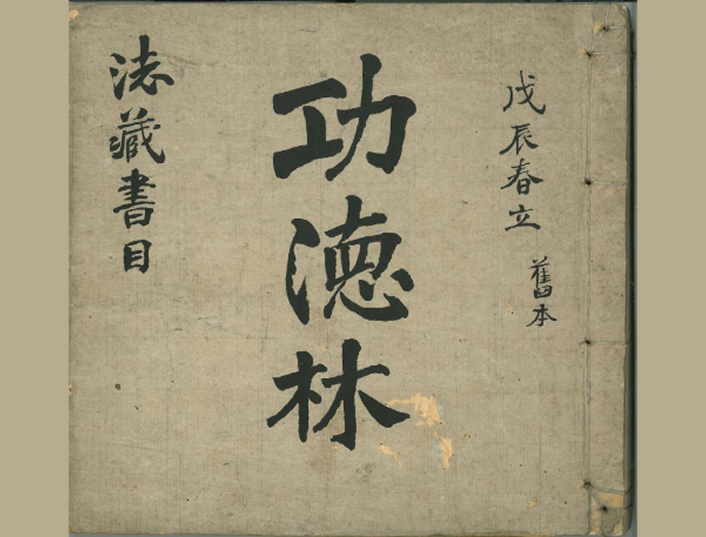 戊辰春立 舊本
功徳林
誌藏書目